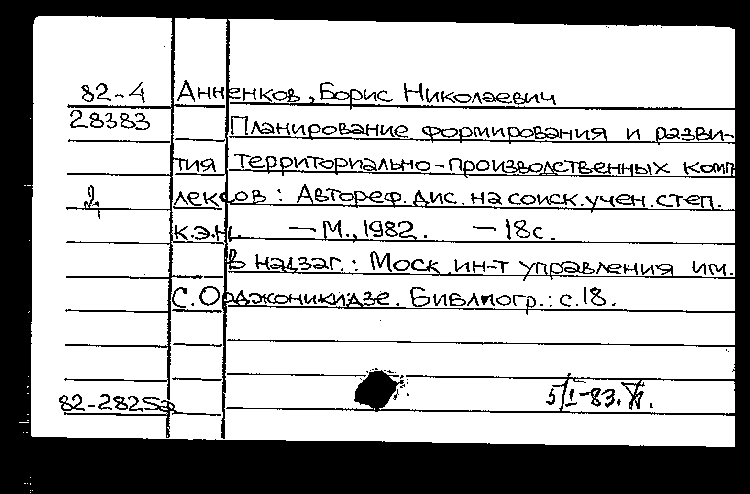 82-4 Анненков, Борис Николаевич
28383 Планирование формирования и разви-
тия территориально-производственных комп
лексов : Автореф. дис. на соиск. учен. степ.
к.э.н. — М., 1982. — 18 с.
В надзаг.: Моск ин-т управления им.
С. Орджоникидзе. Библиогр.: с. 18.
82-28252
5/I-83.